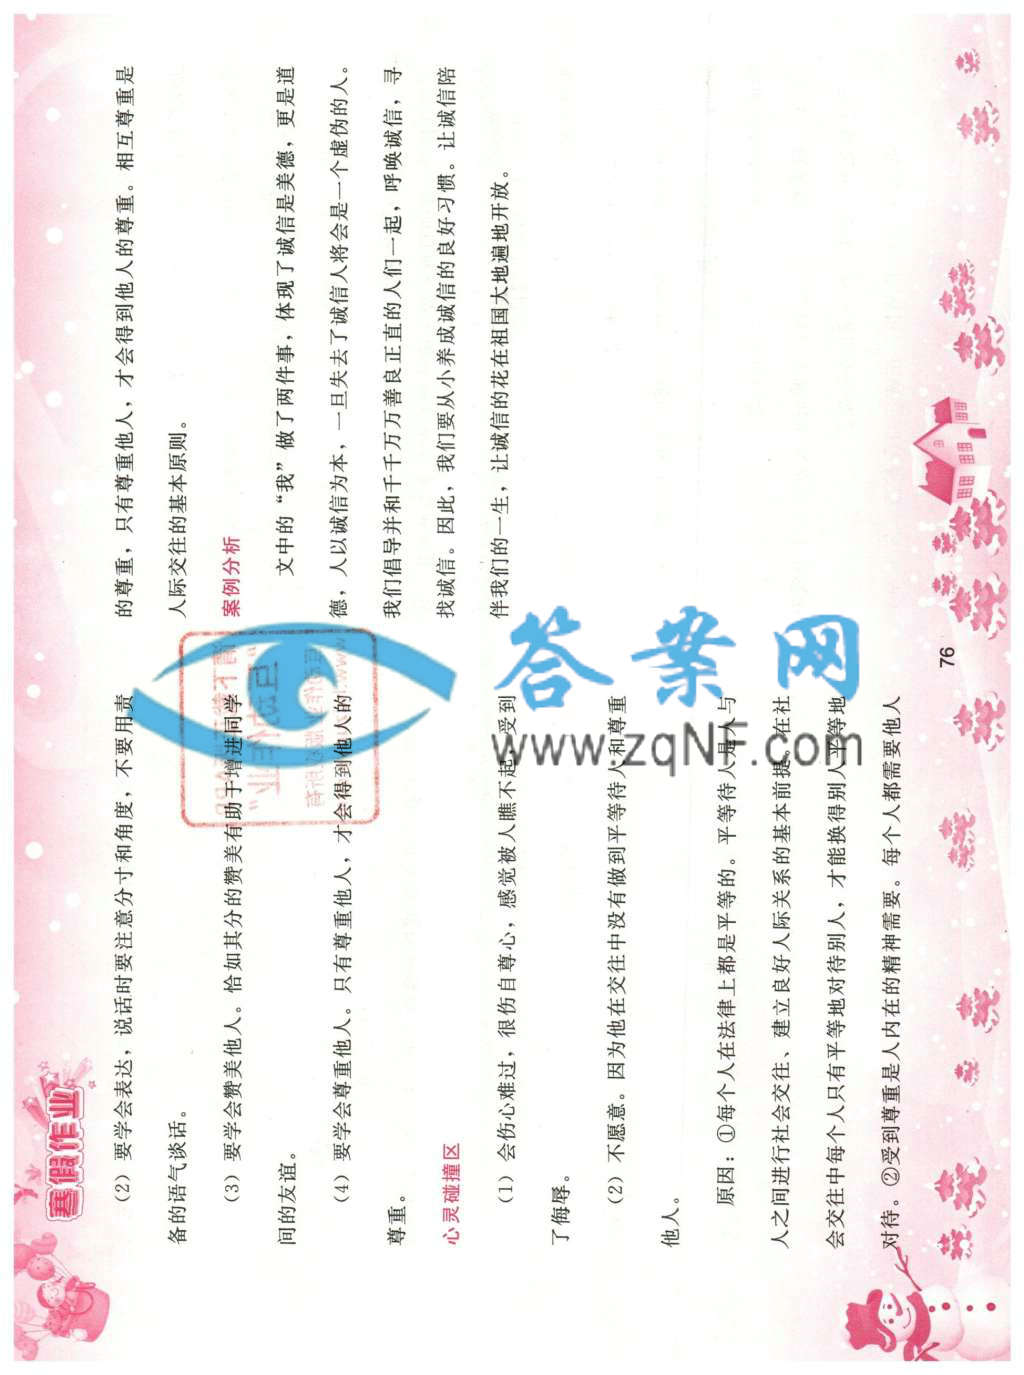 寒假作业
(2) 要学会表达，说话时要注意分寸和角度，不要用责
备的语气谈话。
(3) 要学会赞美他人。恰如其分的赞美有助于增进同学
间的友谊。
(4) 要学会尊重他人。只有尊重他人，才会得到他人的
尊重。
心灵碰撞区
(1) 会伤心难过，很伤自尊心，感觉被人瞧不起，受到
了侮辱。
(2) 不愿意。因为他在交往中没有做到平等待人和尊重
他人。
原因：①每个人在法律上都是平等的。平等待人是人与
人之间进行社会交往、建立良好人际关系的基本前提。在社
会交往中每个人只有平等地对待别人，才能换得别人平等地
对待。②受到尊重是人内在的精神需要。每个人都需要他人
的尊重，只有尊重他人，才会得到他人的尊重。相互尊重是
人际交往的基本原则。
案例分析
文中的“我”做了两件事，体现了诚信是美德，更是道
德，人以诚信为本，一旦失去了诚信人将会是一个虚伪的人。
我们倡导并和千千万万善良正直的人们一起，呼唤诚信，寻
找诚信。因此，我们要从小养成诚信的良好习惯。让诚信陪
伴我们的一生，让诚信的花在祖国大地遍地开放。
76
答案网
www.zqNF.com